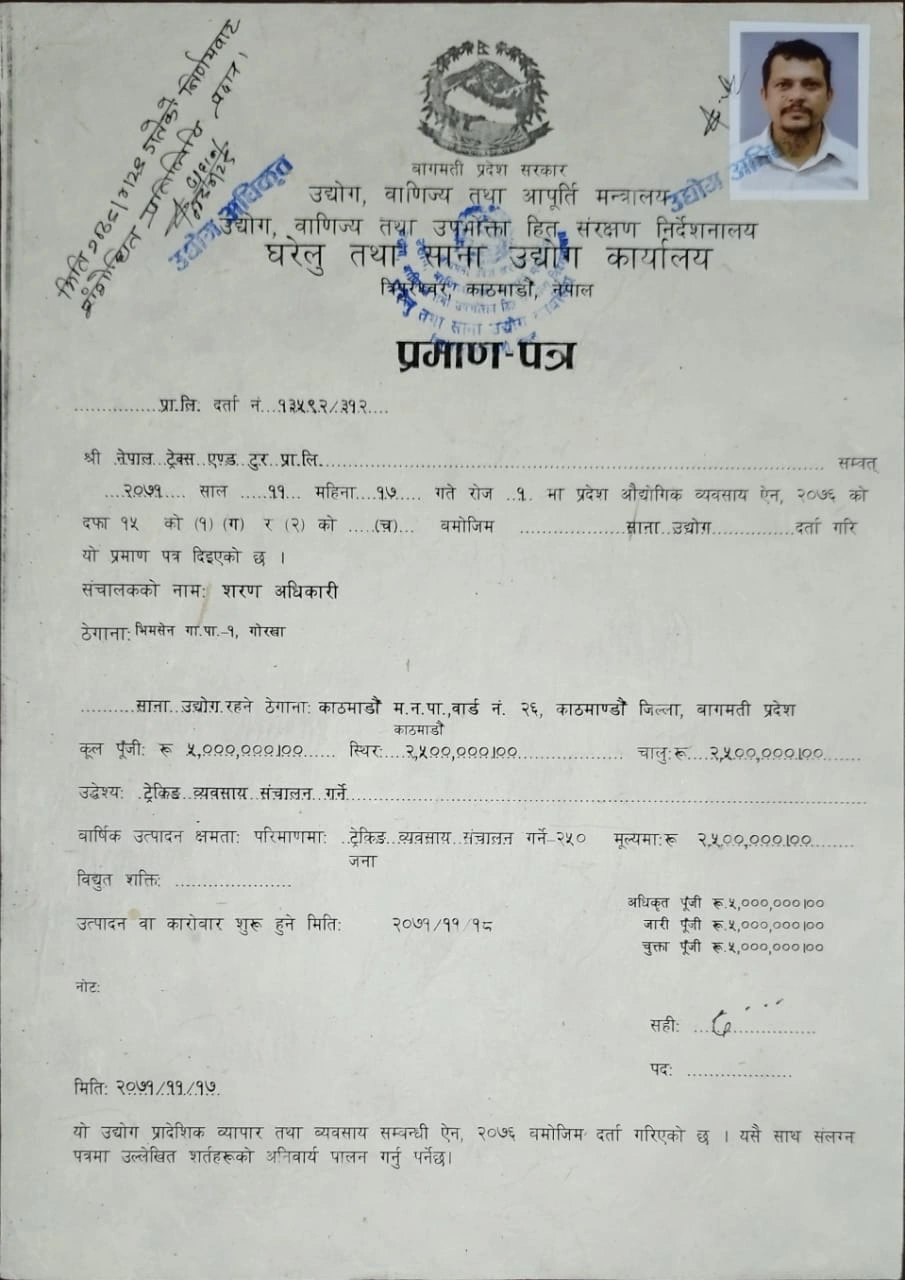 मिति २०८१/२/२९ गतेको निर्णयबाट
संशोधित प्रतिलिपि प्रदान।
उद्योग अधिकृत
बागमती प्रदेश सरकार
उद्योग, वाणिज्य तथा आपूर्ति मन्त्रालय
उद्योग, वाणिज्य तथा उपभोक्ता हित संरक्षण निर्देशनालय
घरेलु तथा साना उद्योग कार्यालय
त्रिपुरेश्वर, काठमाडौं, नेपाल
प्रमाण-पत्र
...............प्रा.लि. दर्ता नं...१३५९२/३१२....
श्री नेपाल ट्रेक्स एण्ड टुर प्रा.लि................ सम्वत्
....२०७१.... साल ....११.... महिना...१७.... गते रोज ..१. मा प्रदेश औद्योगिक व्यवसाय ऐन, २०७६ को
दफा १५ को (१) (ग) र (२) को .....(च)... वमोजिम ....................साना उद्योग................दर्ता गरि
यो प्रमाण पत्र दिइएको छ ।
संचालकको नामः शरण अधिकारी
ठेगानाः भिमसेन गा.पा.-१, गोरखा
..........साना उद्योग रहने ठेगाना: काठमाडौं म.न.पा.,वार्ड नं. २६, काठमाण्डौं जिल्ला, वागमती प्रदेश
काठमाडौं
कूल पूँजी: रू ५,०००,०००।००...... स्थिर:...२,५००,०००।००.................... चालु:रू...२,५००,०००।००.......
उद्धेश्यः .ट्रेकिङ व्यवसाय संचालन गर्ने................
वार्षिक उत्पादन क्षमता: परिमाणमा: ..ट्रेकिङ व्यवसाय संचालन गर्ने-२५० मूल्यमा:रू २,५००,०००।००.......
जना
विद्युत शक्ति: ....................
अधिकृत पूँजी रू.५,०००,०००।००
उत्पादन वा कारोवार शुरू हुने मिति: २०७१/११/१८
जारी पूँजी रू.५,०००,०००।००
चुक्ता पूँजी रू.५,०००,०००।००
नोटः
सही: ....................
पदः ..................
मिति: २०७१/११/१७.
यो उद्योग प्रादेशिक व्यापार तथा व्यवसाय सम्वन्धी ऐन, २०७६ वमोजिम दर्ता गरिएको छ । यसै साथ संलग्न
पत्रमा उल्लेखित शर्तहरूको अनिवार्य पालन गर्नु पर्नेछ।